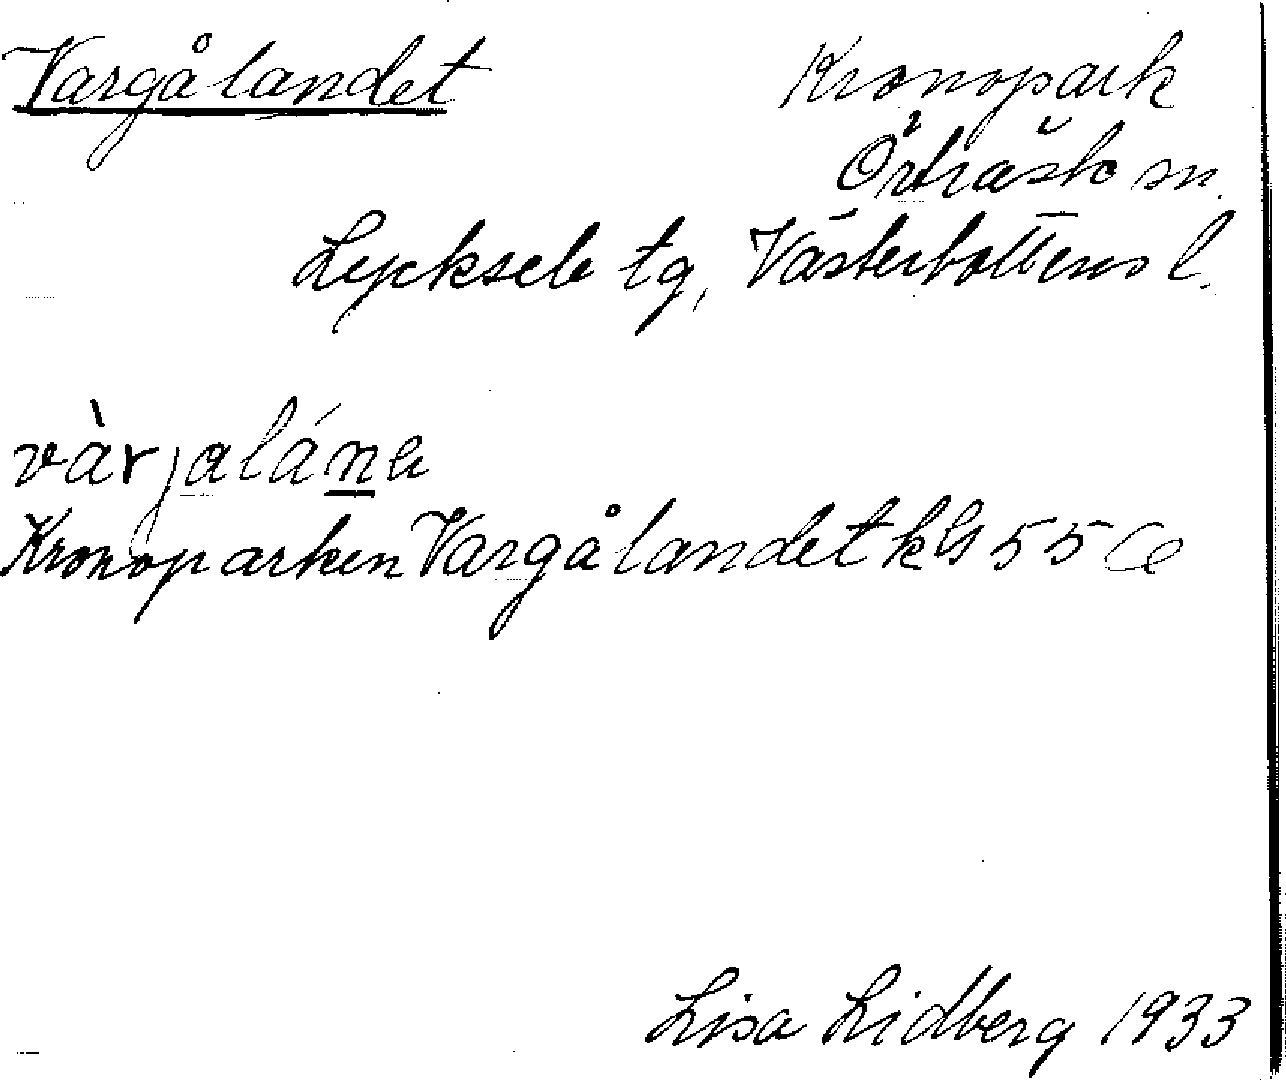 Vargålandet Kronopark
Örträsk sn.
Lycksele tg, Västerbottens l.
vàrjalána
Kronoparken Vargålandet kbl 55 Ce
Lisa Lidberg 1933